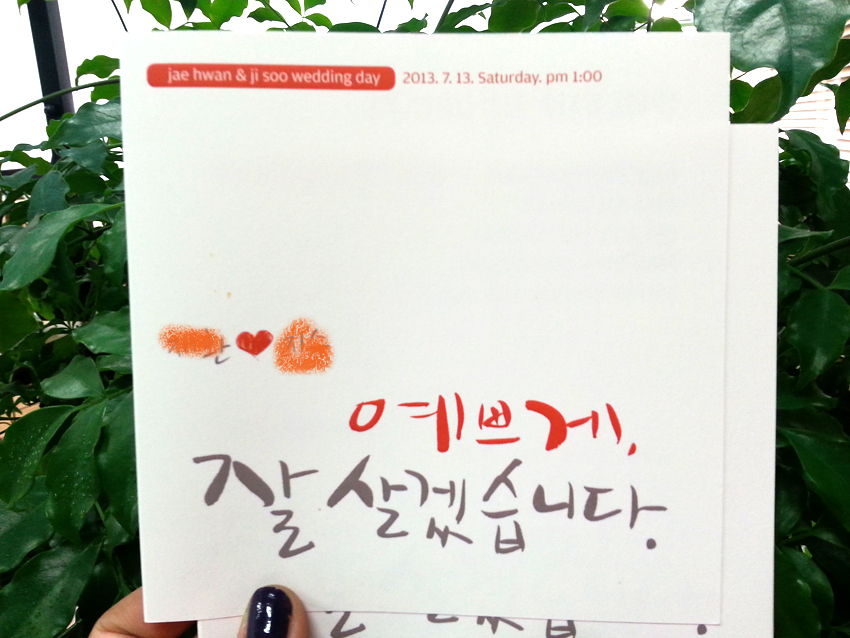 jae hwan & ji soo wedding day 2013. 7. 13. Saturday. pm 1:00
예쁘게,
잘 살겠습니다.